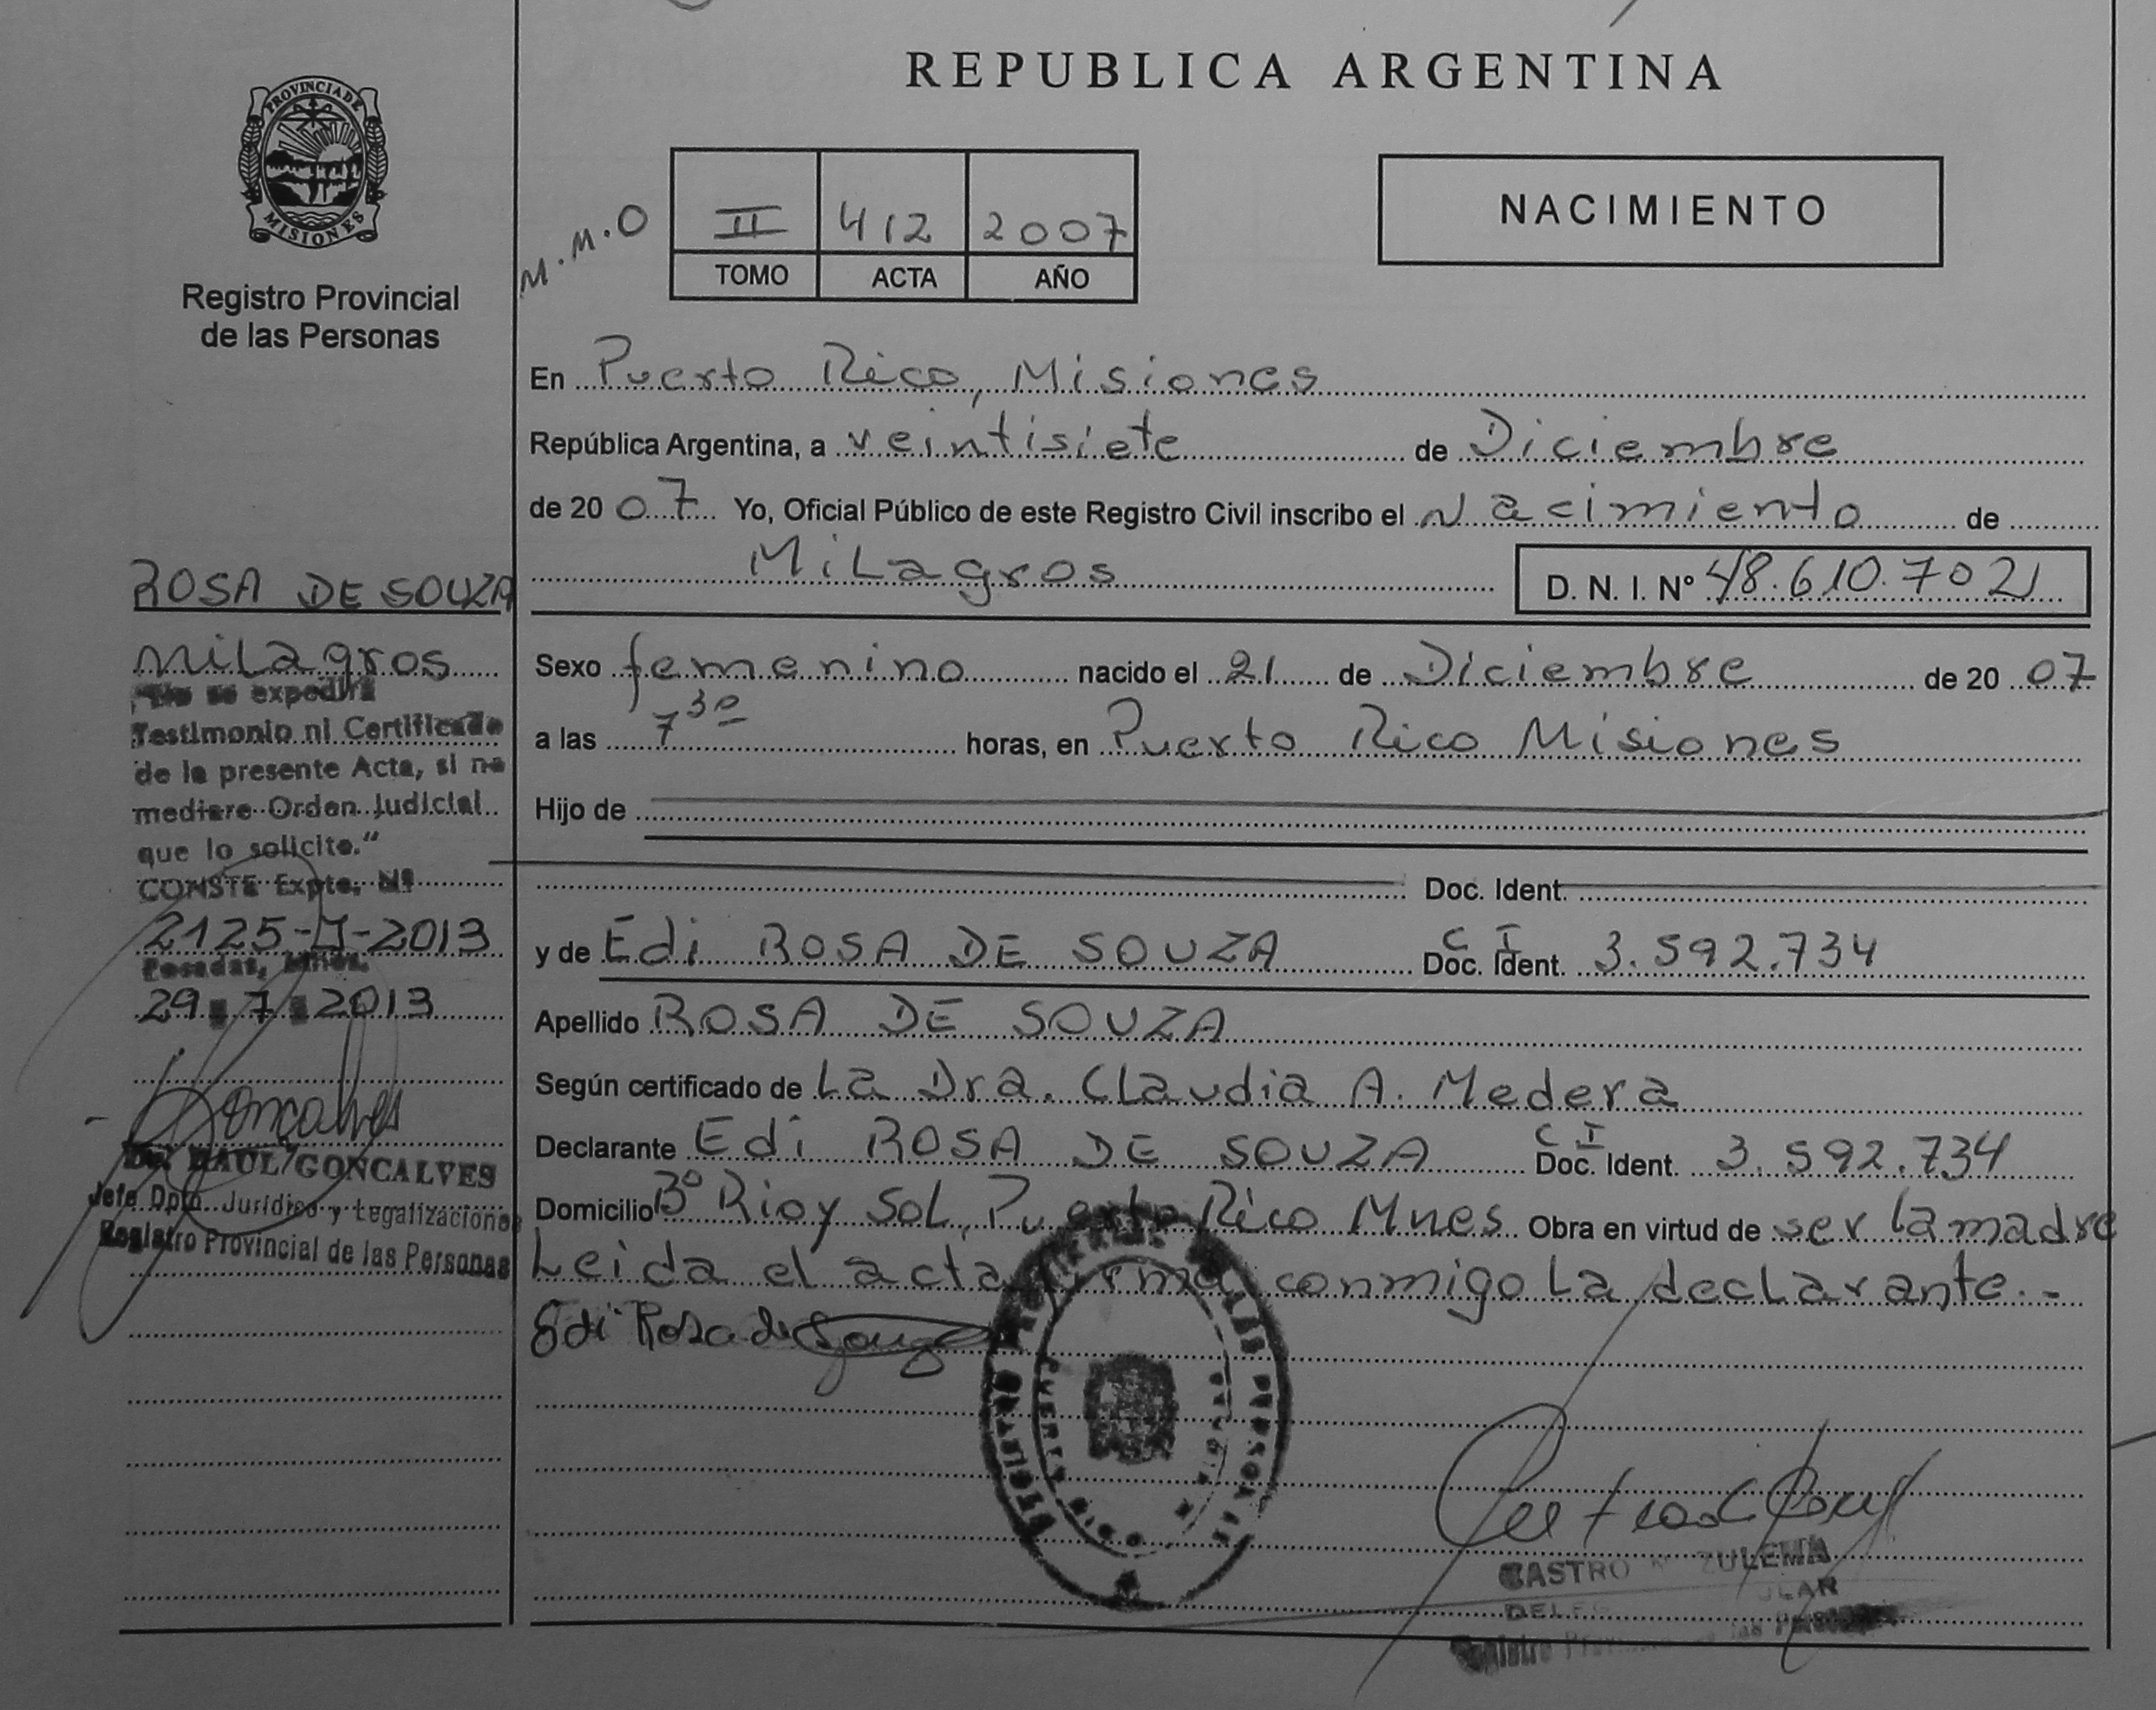 REPUBLICA ARGENTINA
PROVINCIA DE
MISIONES
Registro Provincial
de las Personas
M.M.O
II 412 2007
TOMO ACTA AÑO
NACIMIENTO
En Puerto Rico, Misiones
República Argentina, a veintisiete de Diciembre
de 20 07 Yo, Oficial Público de este Registro Civil inscribo el Nacimiento de
Milagros D. N. I. Nº 48.610.702
Sexo femenino nacido el 21 de Diciembre de 20 07
a las 7 30 horas, en Puerto Rico Misiones
Hijo de
Doc. Ident.
y de Edi ROSA DE SOUZA C I Doc. Ident. 3.592.734
Apellido ROSA DE SOUZA
Según certificado de La Dra. Claudia A. Medera
Declarante Edi ROSA DE SOUZA C I Doc. Ident. 3.592.734
Domicilio Bº Rio y Sol, Puerto Rico Mnes Obra en virtud de ser la madre
Leida el acta firma conmigo La declarante.-
Edi Rosa de Souza
ROSA DE SOUZA
Milagros
"No se expedirá
Testimonio ni Certificado
de la presente Acta, si no
mediare Orden Judicial
que lo solicite."
CONSTE Expte. Nº
2125-J-2013
Posadas, Mnes.
29 7 2013
Goncalves
Dr. RAUL GONCALVES
Jefe Dpto. Jurídico y Legalizaciones
Registro Provincial de las Personas
PUERTO RICO
CASTRO ZULEMA